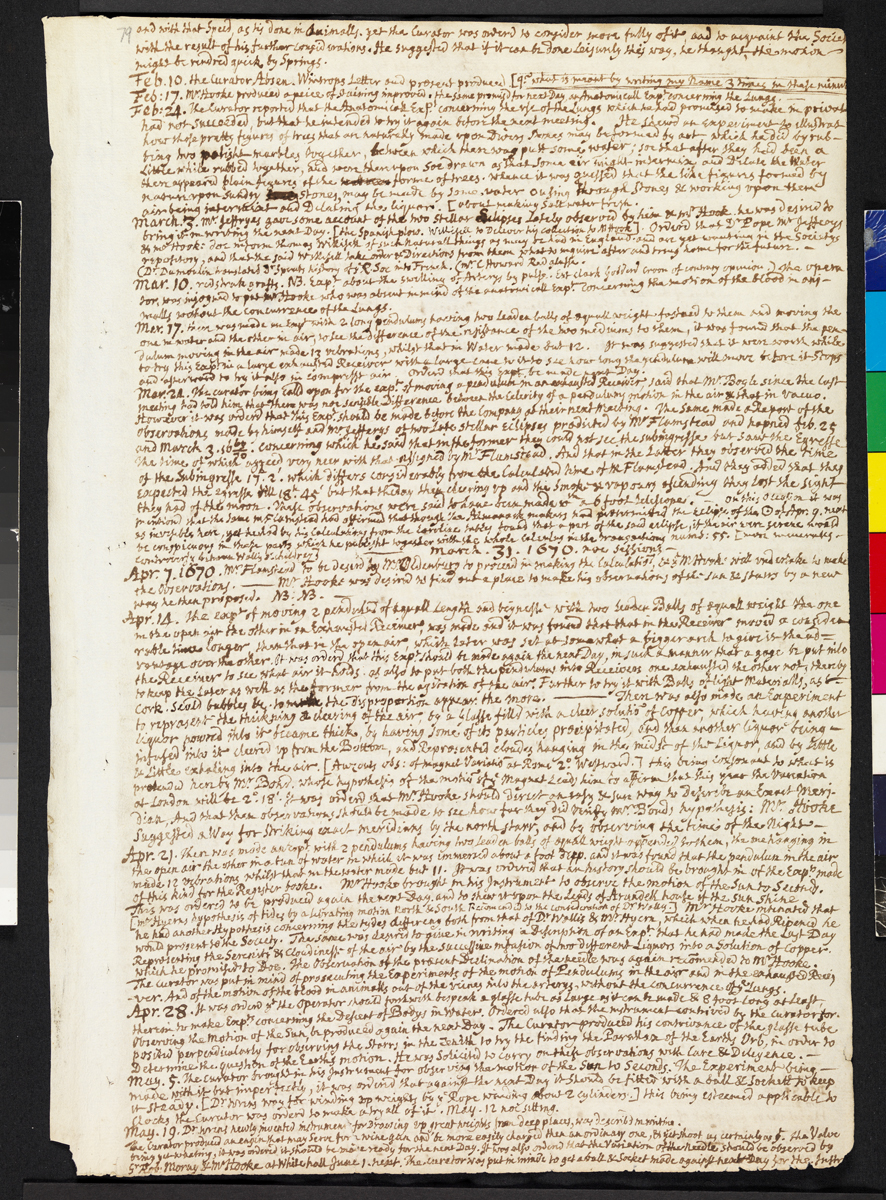 79 and with that Speed, as tis done in Animalls. yet the Curator was orderd to consider more fully of it and to acquaint the Society
with the result of his further considerations. He suggested that if it can be done Leisurly this way, he thought the motion
might be rendred quick by Springs.
Feb. 10. the Curator Absen. Wintrops Letter and present produced [qs. what is meant by writing my Name 3 times in these minuts
Feb: 17. Mr Hooke produced a peice of Staining improved. the same promisd for next Day an Anatomicall Expt. concerning the Lungs.
Feb: 24. The Curator reported that the Anatomicall Expt. concerning the use of the Lungs which he had promised to make in private
had not Succeeded, but that he intended to try it again before the next meeting. He shewd an experiment to illustrat
how those pretty figures of trees that are naturally made upon Divers Stones may be formed by art which he did by rub-
bing two polisht marbles together, between which there was putt some water; soe that after they had been a
Little while rubbed together, and were then upon Soe drawn as that some air might intermix and Dilate the Water
there appeared plain figures of the forme of trees. whence it was guessed that the like figures formed by
nature upon Sundry Stones, may be made by some water ousing through Stones & working upon them
air being intermixt and Dilating the liquor. [about making Salt water fresh.
March. 3. Mr. Jeffryes gave some account of the two Stellar Eclipses Lately observed by him & Mr Hook. he was desired to
bring it in writing the next Day. [the Spanish plow. Willisell to Deliver his collection to Mr Hook]. Orderd that Dr Pope Mr Jeffreys
& Mr Hook: doe inform thomas Willisell of such naturall things as may be had in England and are yet wanting in the Societys
repository, and that the said Willisell take order & Directions from them what to enquire after and bring home for the future. -
(Dr. Dumoulin translated Dr. Sprats history of ye R. Soc into French. (Mr. C Howard
Mar. 10. NB. Expt. about the swelling of Arterys by pulse. Ent Clark Goddard Croon of contrary opinion,) the opera
tor, was injoynd to put Mr Hooke who was absent in mind of the anatomicall Expt. concerning the motion of the blood in ani-
malls without the concurrence of the Lungs.
Mar. 17. there was made an Expt with 2 long pendulums having two Leaden balls of equall weight fastned to them and moving the
one in water and the other in air, to see the difference of the resistance of the two mediums to them, it was found that the pen-
dulum moving in the air made 13 vibrations, whilst that in Water made but 12. It was suggested that it were worth while
to try this Expt. in a large exhausted Receiver with a large cane to it to see how long the pendulum will move before it stops
and afterward to try it also in compresst air. Orderd that this Expt. be made next Day.
Mar. 24. The Curator being calld upon for the expt. of moving a pendulum in an exhausted Receiver said that Mr Boyle since the Last
meeting had told him that there was noe sensible Difference between the celerity of a pendulums motion in the air & that in Vacuo.
However it was orderd that this Expt. Should be made before the Company at their next Meeting. The same made a Report of the
Observations made by himself and Mr Jefferys of two Late Stellar Eclipses predicted by Mr Flamstead and hapned Feb. 25
and March 3. 16 69/70. concerning which he said that in the former they could not see the subingresse but Saw the Egresse
the time of which agreed very neer with that assigned by Mr. Flamstead. And that in the Latter they observed the time
of the Subingresse 17.2. which differs considerably from the Calculated time of Mr Flamstead. And they added that they
Expected the egresse till 18h. 45' but that the day then clearing up and the Smoke & vapours ascending they lost the Sight
they had of the moon. These observations were said to have been made wth a 6 foot telescope. On this Occasion it was
mentiond that the same Mr Flamstead had affirmed that though the Almanack makers had pretermitted the Eclipse of the ☉ of Apr. 9. next
as invisible here, yet he did by his Calculations from the Caroline tables found that a part of the said eclipse, if the air were serene would
be conspicuous in these parts which he publisht together with the whole Calculus in the transactions numb: 55.
controversy between Wallis & Childrey] March. 31. 1670. noe Sessions
Apr. 7. 1670. Mr. Flamstead to be desird by Mr Oldenburg to proceed in making the Calculations, as Mr Hooke will undertake to make
the Observations. —— Mr. Hooke was desird to find out a place to make his observations of the Sun & stars by a new
way he then proposed. NB: NB.
Apr. 14. The expt. of moving 2 pendulums of equall Length and bignesse with two Leaden Balls of equall weight the one
in the open air the other in an Exhausted Receiver was made and it was found that that in the Receiver moved a consider-
rable time longer, then that in the open air, which Later was set at somewhat a bigger arch to give it the ad-
vantage over the other. It was orderd that this Expt. Should be made again the next Day, in such a manner that a gage be put into
the Receiver to see what air it holds. as also to put both the pendulums into Receivers one exhausted the other not, thereby
to keep the Later as well as the former from the agitation of the air. Further to try it with Balls of light Materialls, as
Cork. Seald bubbles &c. to make the disproportion appear the more. —— Then was also made an Experiment
to represent the thickning & cleering of the air, by a Glasse filld with a cleer solution of Copper, which having another
Liquor powred into it became thick, by having some of its particles precipitated, and then another Liquor being
infused into it cleerd up from the Bottom, and Represented cloudes hanging in the midst of the Liquor, and by little
& Little exhaling into the air. [Auzouts obs: of magnet Variation at Rome 2°. Westward.] this being consonant to what is
pretended here by Mr. Bond, whose hypothesis of the motion of ye Magnet Leads him to affirm that this year the Variation
at London will be 2°. 18'. It was orderd that Mr. Hooke should direct an easy & sure way to describe an Exact Meri-
dian. And that then observations should be made to see how far they did verify Mr. Bonds hypothesis: Mr. Hooke
Suggested a Way for Striking exact meridians by the north starr, and by observing the time of the Night —
Apr. 21. Then was made an expt. with 2 pendulums having two Leaden balls of equall weight appended to them, the one hanging in
the open air the other in a tun of water in which it was immersed about a foot Deep. and it was found that the pendulum in the air
made 12 vibrations whilst that in the water made but 11. It was ordered that an history should be brought in of the Expts. made
of this kind for the Register booke. Mr Hooke brought in his Instrument to observe the motion of the Sun to Seconds.
This was ordered to be produced again the next Day, and to shew it upon the Leads of Arundell house if the Sun Shine
[Mr. Hyrns hypothesis of tides by a librating motion North & South Referrd to the consideration of Dr Wallis.] Mr Hooke intimated that
he had another Hypothesis concerning the tydes different both from that of Dr. Wallis & Mr Hyrn, which when he had Ripened he
would present to the Society. The same was desired to give in writing a Description of an Expt. that he had made the Last Day
Representing the Serenity & Cloudiness of the air by the Successive infusion of two different Liquors into a Solution of Copper.
which he promised to Doe. The Observation of the present Declination of the needle was again recomended to Mr Hooke.
The Curator was put in mind of prosecuting the Experiments of the motion of Pendulums in the air and in the exhausted Recei-
ver. And of the motion of the blood in animalls out of the veines into the arterys, without the concurrence of ye Lungs.
Apr. 28. It was ordered yt the Operator should forthwith bespeak a glasse tube as Large as it can be made & 8 foot long at Least,
therein to make Expts. concerning the Descent of Bodys in Water. Ordered also that the instrument contrived by the Curator for
observing the Motion of the Sun, be produced again the next Day. The Curator produced his contrivance of the glasse tube
posited perpendicularly for observing the Starrs in the Zenith to try the finding the Parallax of the Earths Orb, in order to
Determine the question of the Earths motion. He was Solicited to carry on these observations with Care & Diligence. —
May. 5. The Curator brought in his Instrument for observing the motion of the Sun to Seconds. The Experiment being
made with it but imperfectly, it was orderd that against the next Day it should be fitted with a ball & Sockett to keep
it steady. [Dr. Wrens way for winding up weights by ye Rope winding about 2 cylinders.] this being esteemed applicable to
clocks the Curator was orderd to make a tryall of it. May. 12 not sitting.
May. 19. Dr. Wrens newly invented instrument for Drawing up great weights from deep places, was described in writing.
The Curator produced an engin that may serve for a wind gun and be more easily charged then an ordinary one, & yet shoot as certainly as ys. the Valve
being yet wanting, it was orderd it should be made ready for the next Day. It was also orderd that the Variation of the Needle should be observed by
Sr Rob. Moray & Mr Hooke at Whitehall June 1. next. The Curator was put in mind to get a ball & Socket made against next Day for the Instr